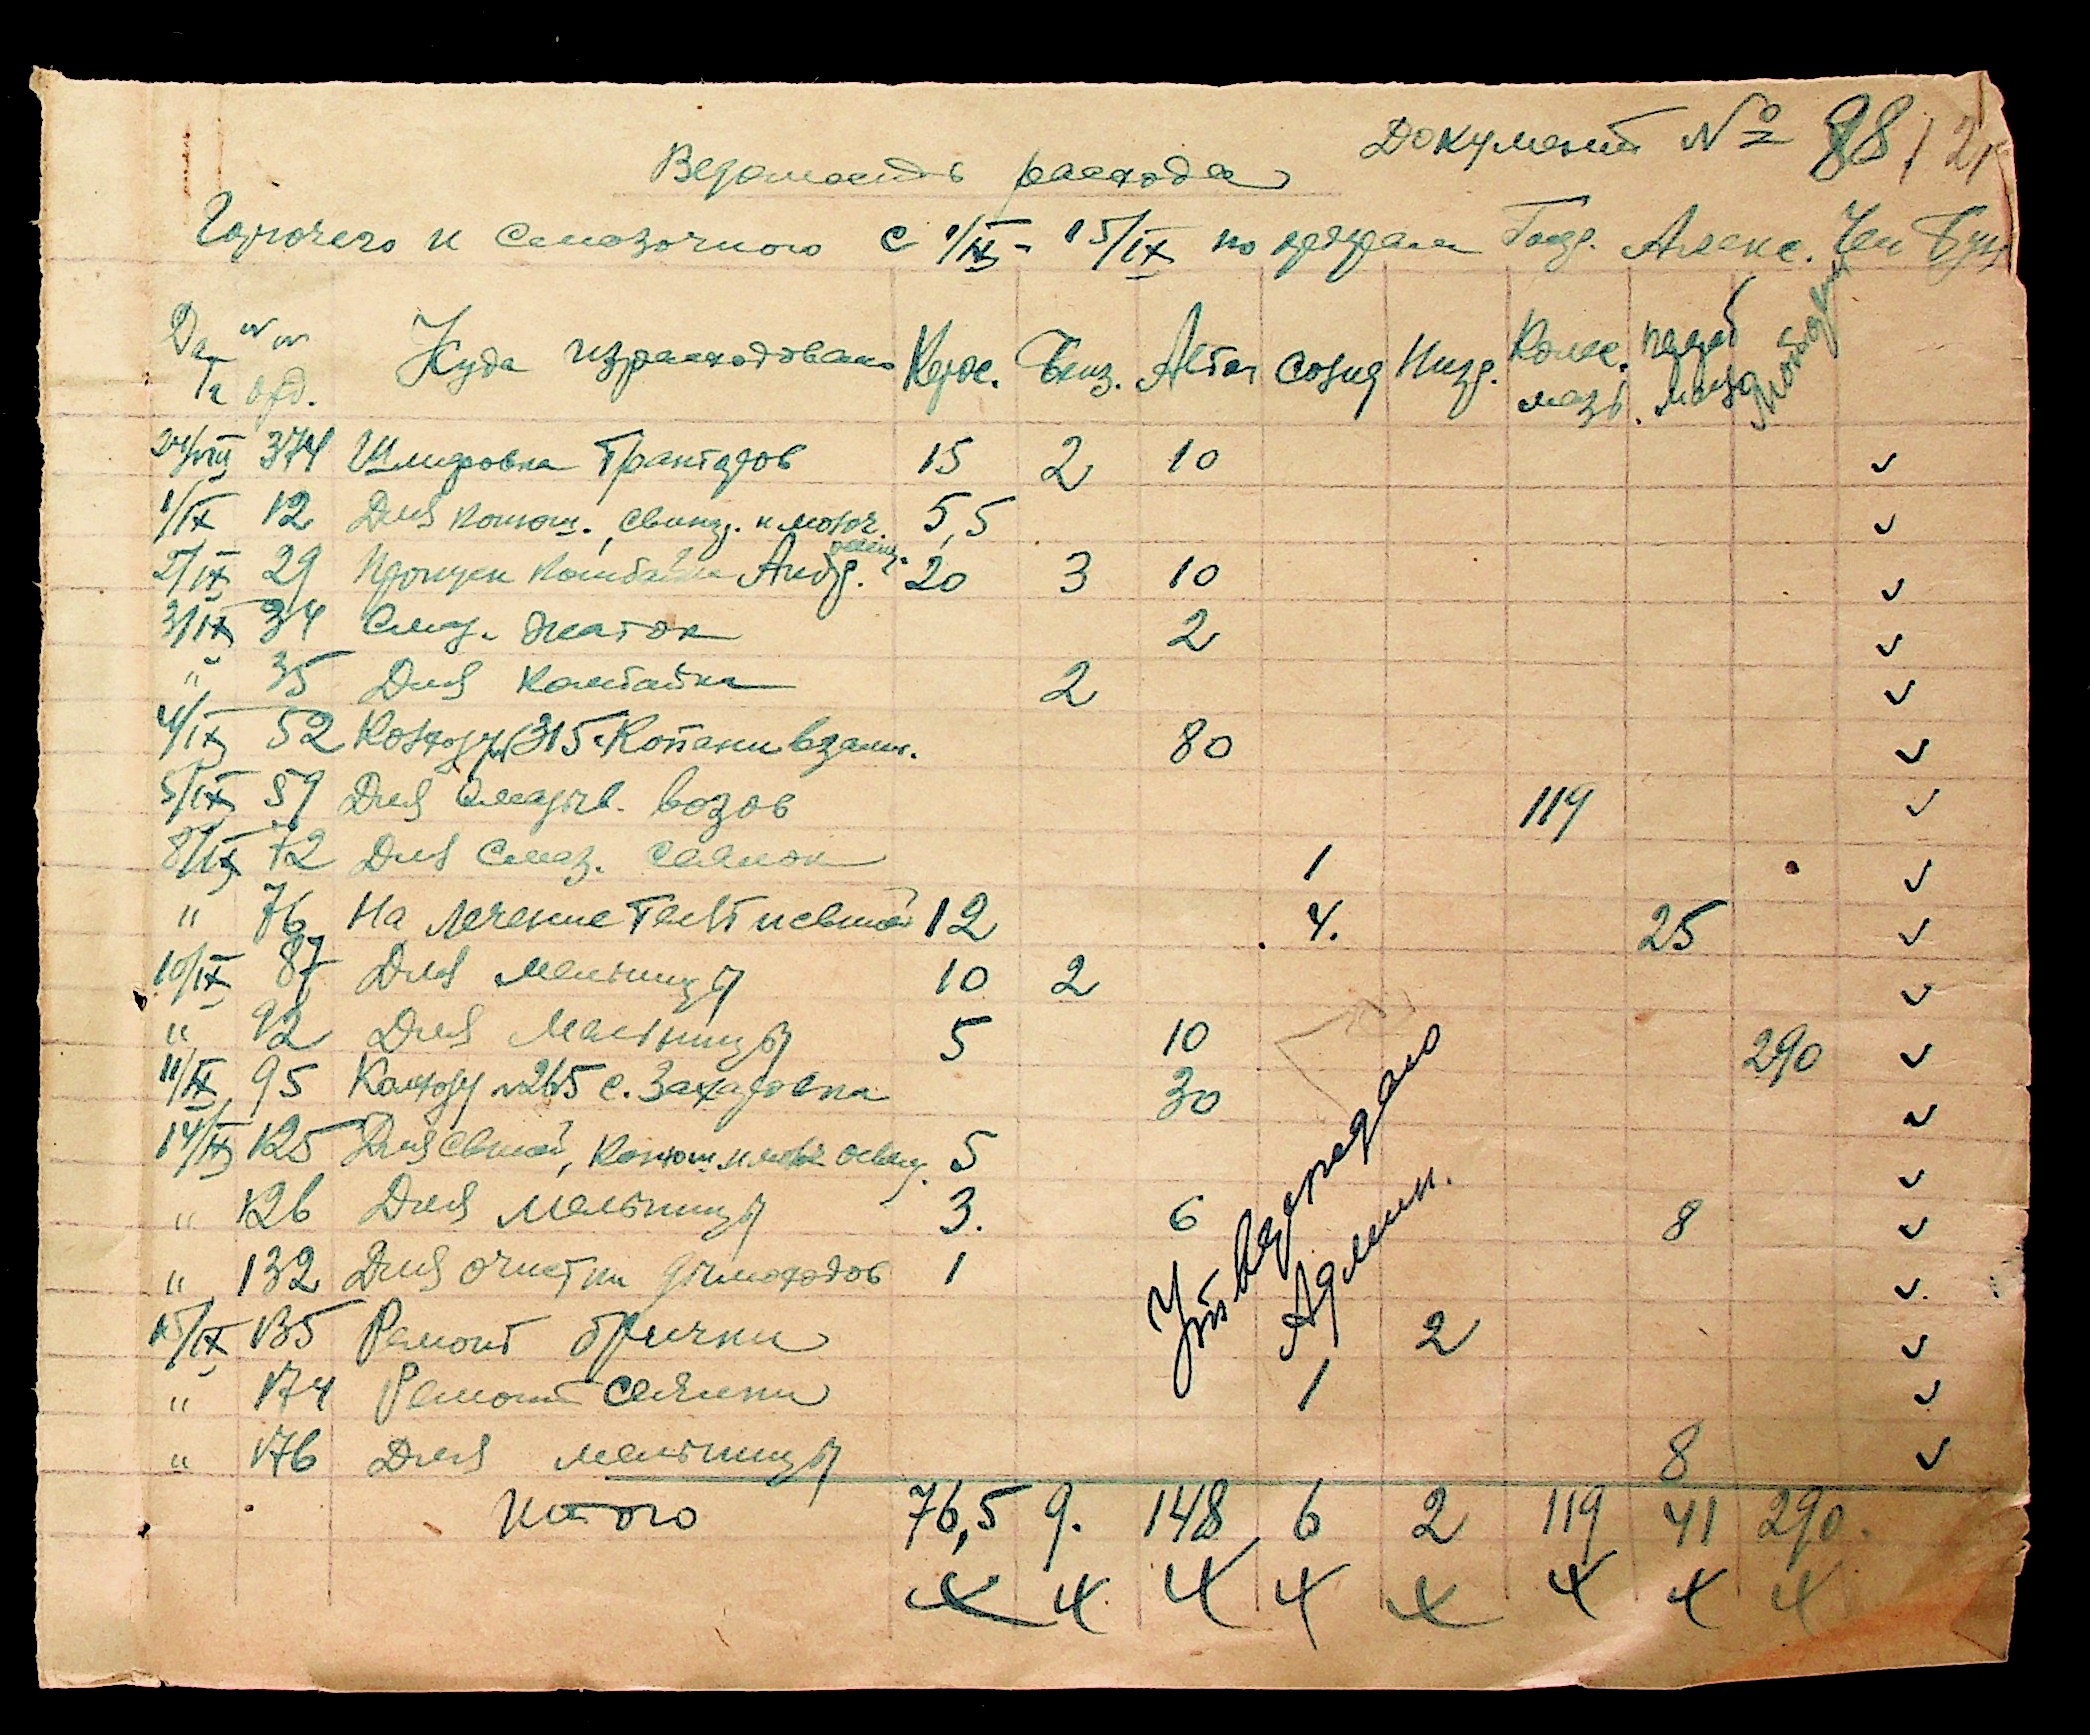 Документ № 88
Ведомость расхода
Горючего и смазочного с 1/IX - 15/IX по ордерам Госуд. Алекс.
Да та №№ орд. Куда израсходовано Керос. Бенз. Автол Солид Нигр. Колес. мазь
24/VIII 374 Шлифовка Тракторов 15 2 10
1/IX 12 Для конюш., свинар. и молоч. 5,5
2/IX 29 комбайна 20 3 10
3/IX 34 Смаз. жаток 2
" 35 Для комбайна 2
4/IX 52 Колхозу 315 Копани взаим. 80
5/IX 59 Для смазыв. возов 119
8/IX 72 Для смаз. сеялок 1
" 76 На лечение 12 4. 25
10/IX 87 Для мельницы 10 2
" 92 Для мельницы 5 10 290
11/IX 95 Колхозу №265 с. Захаровка 30
14/IX 125 Для конюш. и молоч. освещ. 5
" 126 Для мельницы 3. 6 8
" 132 Для очистки дымоходов 1
15/IX 135 Ремонт брички 2
" 174 Ремонт сеялки 1
" 176 Для мельницы 8
Итого 76,5 9. 148 6 2 119 41 290.
Админ.